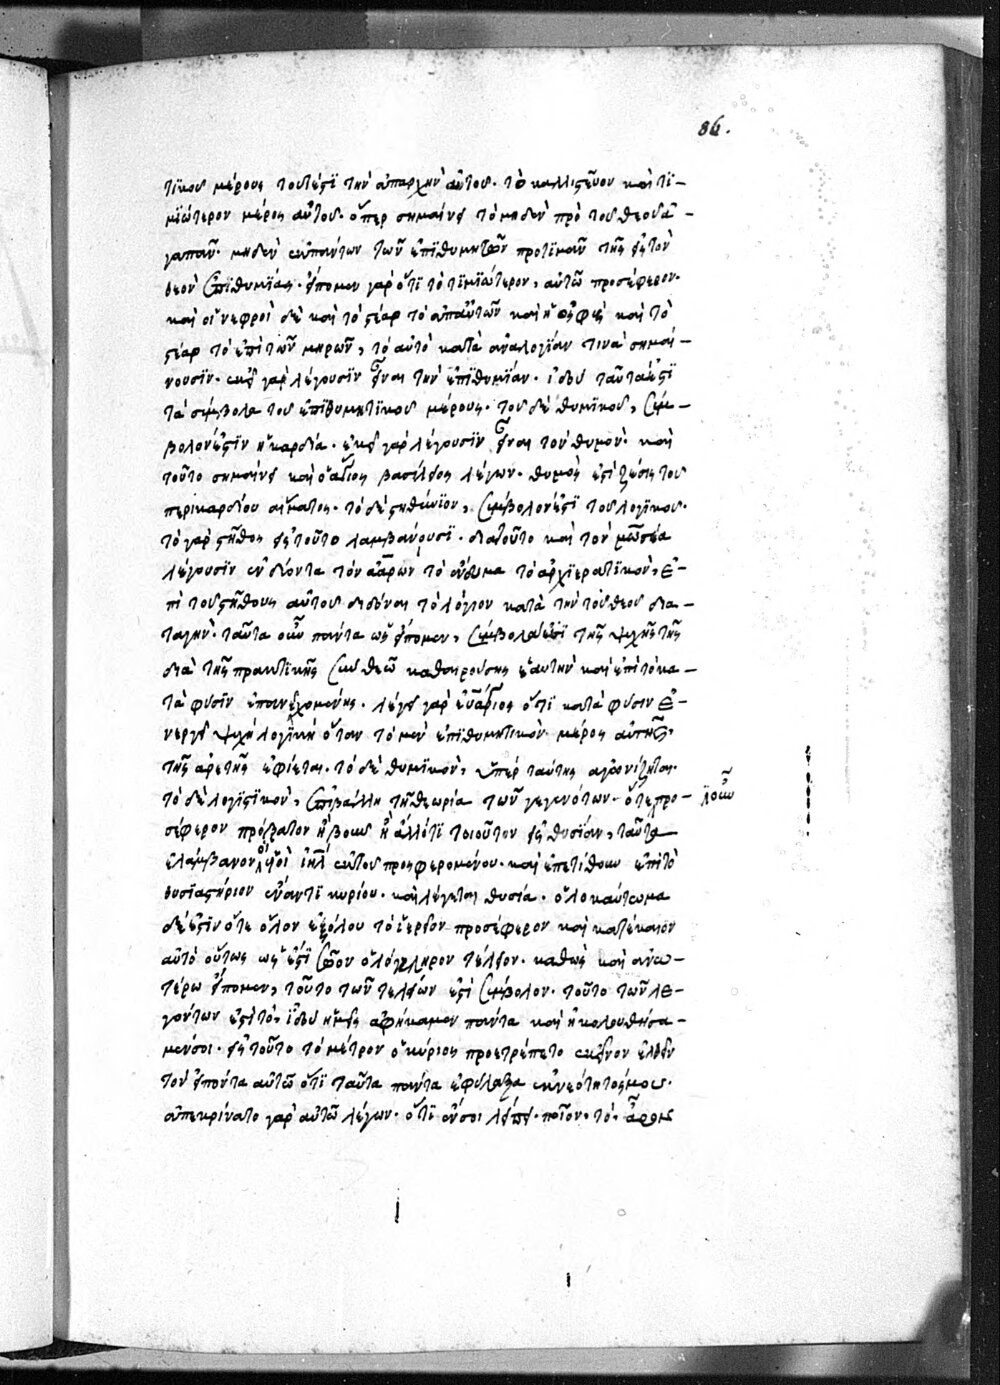 86.
τϊκοῦ μέρους τουτέστϊ τὴν ἀπαρχὴν αὐτοῦ. τὸ καλλιστεῦον καὶ τϊ-
μϊώτερον μέρος αὐτοῦ. ὅπερ σημαίνει τὸ μηδὲν πρὸ τοῦ θεοῦ ἀ-
γαπᾶν. μηδὲν ἁπάντων τῶν ἐπϊθυμητῶν προτϊμᾶν τῆς εἰς τὸν
θεὸν ἐπϊθυμίας. εἴπομεν γὰρ ὅτϊ τὸ τϊμϊώτερον, αὐτῶ προσέφερον.
καὶ οἱ νεφροὶ δὲ καὶ τὸ στέαρ τὸ ἀπ' αὐτῶν καὶ ἡ ὀσφῦς καὶ τὸ
στέαρ τὸ ἐπὶ τῶν μηρῶν, τὸ αὐτὸ κατὰ ἀναλογίαν τινὰ σημαί-
νουσϊν. ἐκεῖ γὰρ λέγουσϊν εἶναι τὴν ἐπϊθυμίαν. ἰδοὺ ταῦτά ἐστϊ
τὰ σύμβολα τοῦ ἐπϊθυμητϊκοῦ μέρους. τοῦ δὲ θυμϊκοῦ, σύμ-
βολόν ἐστϊν ἡ καρδία. ἐκεῖ γὰρ λέγουσϊν εἶναι τὸν θυμόν. καὶ
τοῦτο σημαίνει καὶ ὁ ἅγιος βασίλειος λέγων. θυμός ἐστι ζέσις τοῦ
περικαρδίου αἵματος. τὸ δὲ στηθύνϊον, σύμβολόν ἐστϊ τοῦ λογϊκοῦ.
τὸ γὰρ στῆθος εἰς τοῦτο λαμβάνουσϊ. διατοῦτο καὶ τὸν μωσέα
λέγουσϊν ἐνδύοντα τὸν ἀαρὼν τὸ ἔνδυμα τὸ ἀρχϊερατϊκὸν, ἐ-
πὶ τοῦ στήθους αὐτοῦ διδόναι τὸ λόγιον κατὰ τὴν τοῦ θεοῦ δια-
ταγήν. ταῦτα οὖν πάντα ὡς εἴπομεν, σύμβολά εἰσϊ τῆς ψυχῆς τῆς
διὰ τῆς πρακτϊκῆς σὺν θεῶ καθαιρούσης ἑαυτὴν καὶ ἐπὶ τὸ κα-
τὰ φύσϊν ἐπανερχομένης. λέγει γὰρ εὐάγριος ὅτϊ κατὰ φύσιν ἐ-
νεργεῖ ψυχὴ λογϊκὴ ὅταν τὸ μὲν ἐπϊθυμητϊκὸν μέρος αὐτῆς,
τῆς ἀρετῆς ἐφίεται. τὸ δὲ θυμϊκὸν, ὑπὲρ ταύτης ἀγωνίζηται.
τὸ δὲ λογϊστϊκὸν, ἐπϊβάλλη τῆ θεωρία τῶν γεγονότων. ὅτε προ-
σέφερον πρόβατον ἢ βοῦν ἢ ἄλλό τϊ τοιοῦτον εἰς θυσϊάν, ταῦτα
ἐλάμβανον οἱ υἱοὶ ἰηλ ἐκ τοῦ προσφερομένου. καὶ ἐπετίθουν ἐπὶ τὸ
θυσϊαστήριον ἔναντϊ κυρίου. καὶ λέγεται θυσία. ὁλοκαύτωμα
δέ ἐστϊν ὅτε ὅλον ἐξόλου τὸ ἱερεῖον προσέφερον καὶ κατέκαιον
αὐτὸ οὕτως ὡς ἐστϊ σῶον ὁλόκληρον τέλειον. καθὼς καὶ ἀνω-
τέρω εἴπομεν, τοῦτο τῶν τελείων ἐστὶ σύμβολον. τοῦτο τῶν λε-
γόντων ἐστὶ τὸ, ἰδοὺ ἡμεῖς ἀφήκαμεν πάντα καὶ ἠκολουθήσα-
μέν σοι. εἰς τοῦτο τὸ μέτρον ὁ κύριος προετρέπετο ἐκεῖνον ἐλθεῖν
τὸν εἰπόντα αὐτῶ ὅτϊ ταῦτα πάντα ἐφύλαξα ἐκ νεότητός μου.
ἀπεκρίνατο γὰρ αὐτῶ λέγων. ὅτϊ ἕν σοι λείπει. ποῖον. τὸ, ἆρον